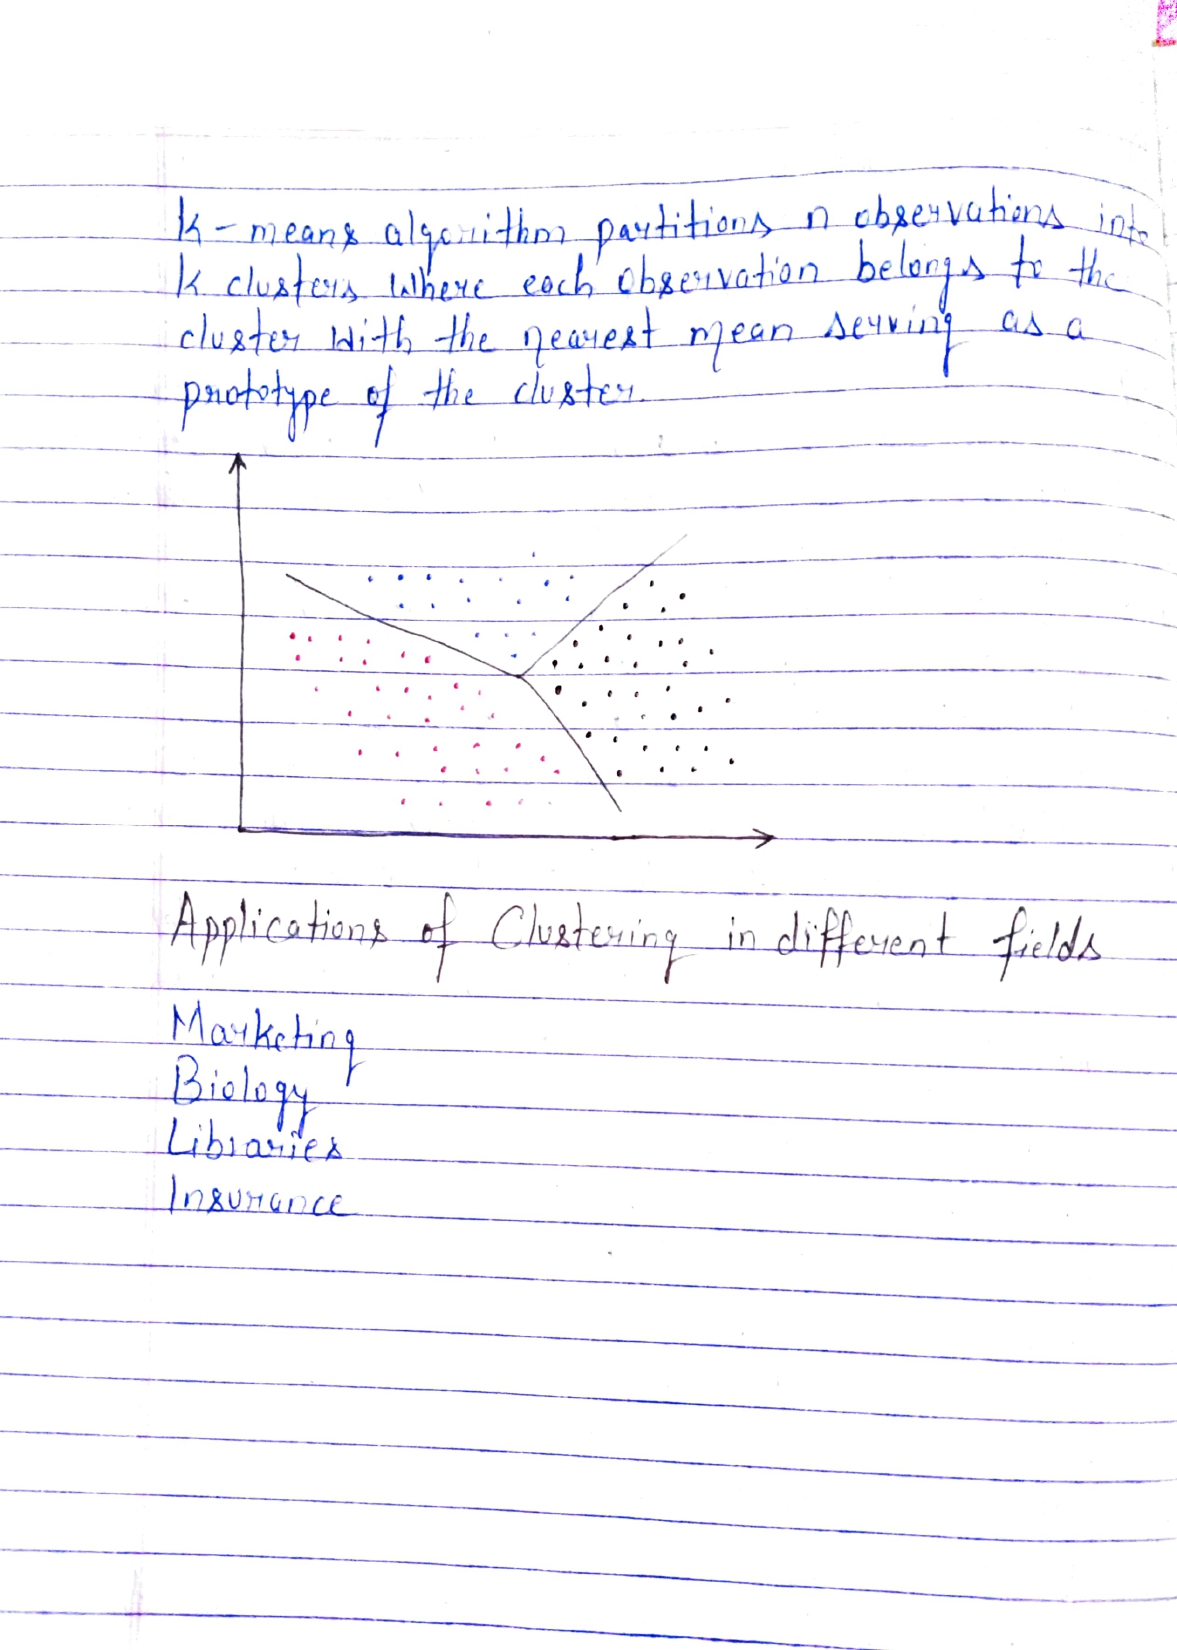 k-means algorithm partitions n observations into
k clusters where each observation belongs to the
cluster with the nearest mean serving as a
prototype of the cluster.
Applications of Clustering in different fields
Marketing
Biology
Libraries
Insurance